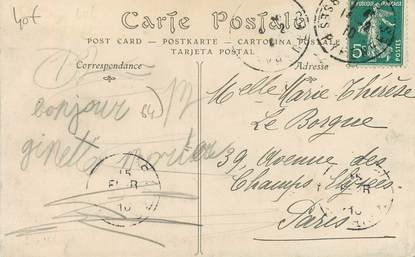 40f
Carte Postale
POST CARD — POSTKARTE — CARTOLINA POSTALE
TARJETA POSTAL
Correspondance
Adresse
bonjour
ginette
Melle Marie Thérèse
Le Borgne
39, Avenue des
Champs Elysées
Paris
5c
15
10